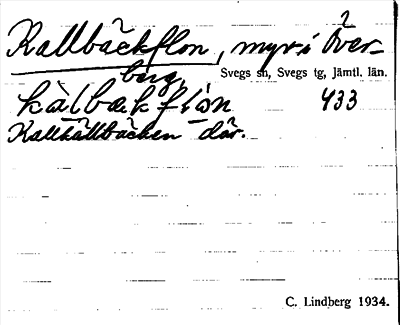 Kallbäckflon, myr i Över-
berg, Svegs sn, Svegs tg, Jämtl. län.
kàlbækflon 433
Kallkällbäcken där.
C. Lindberg 1934.